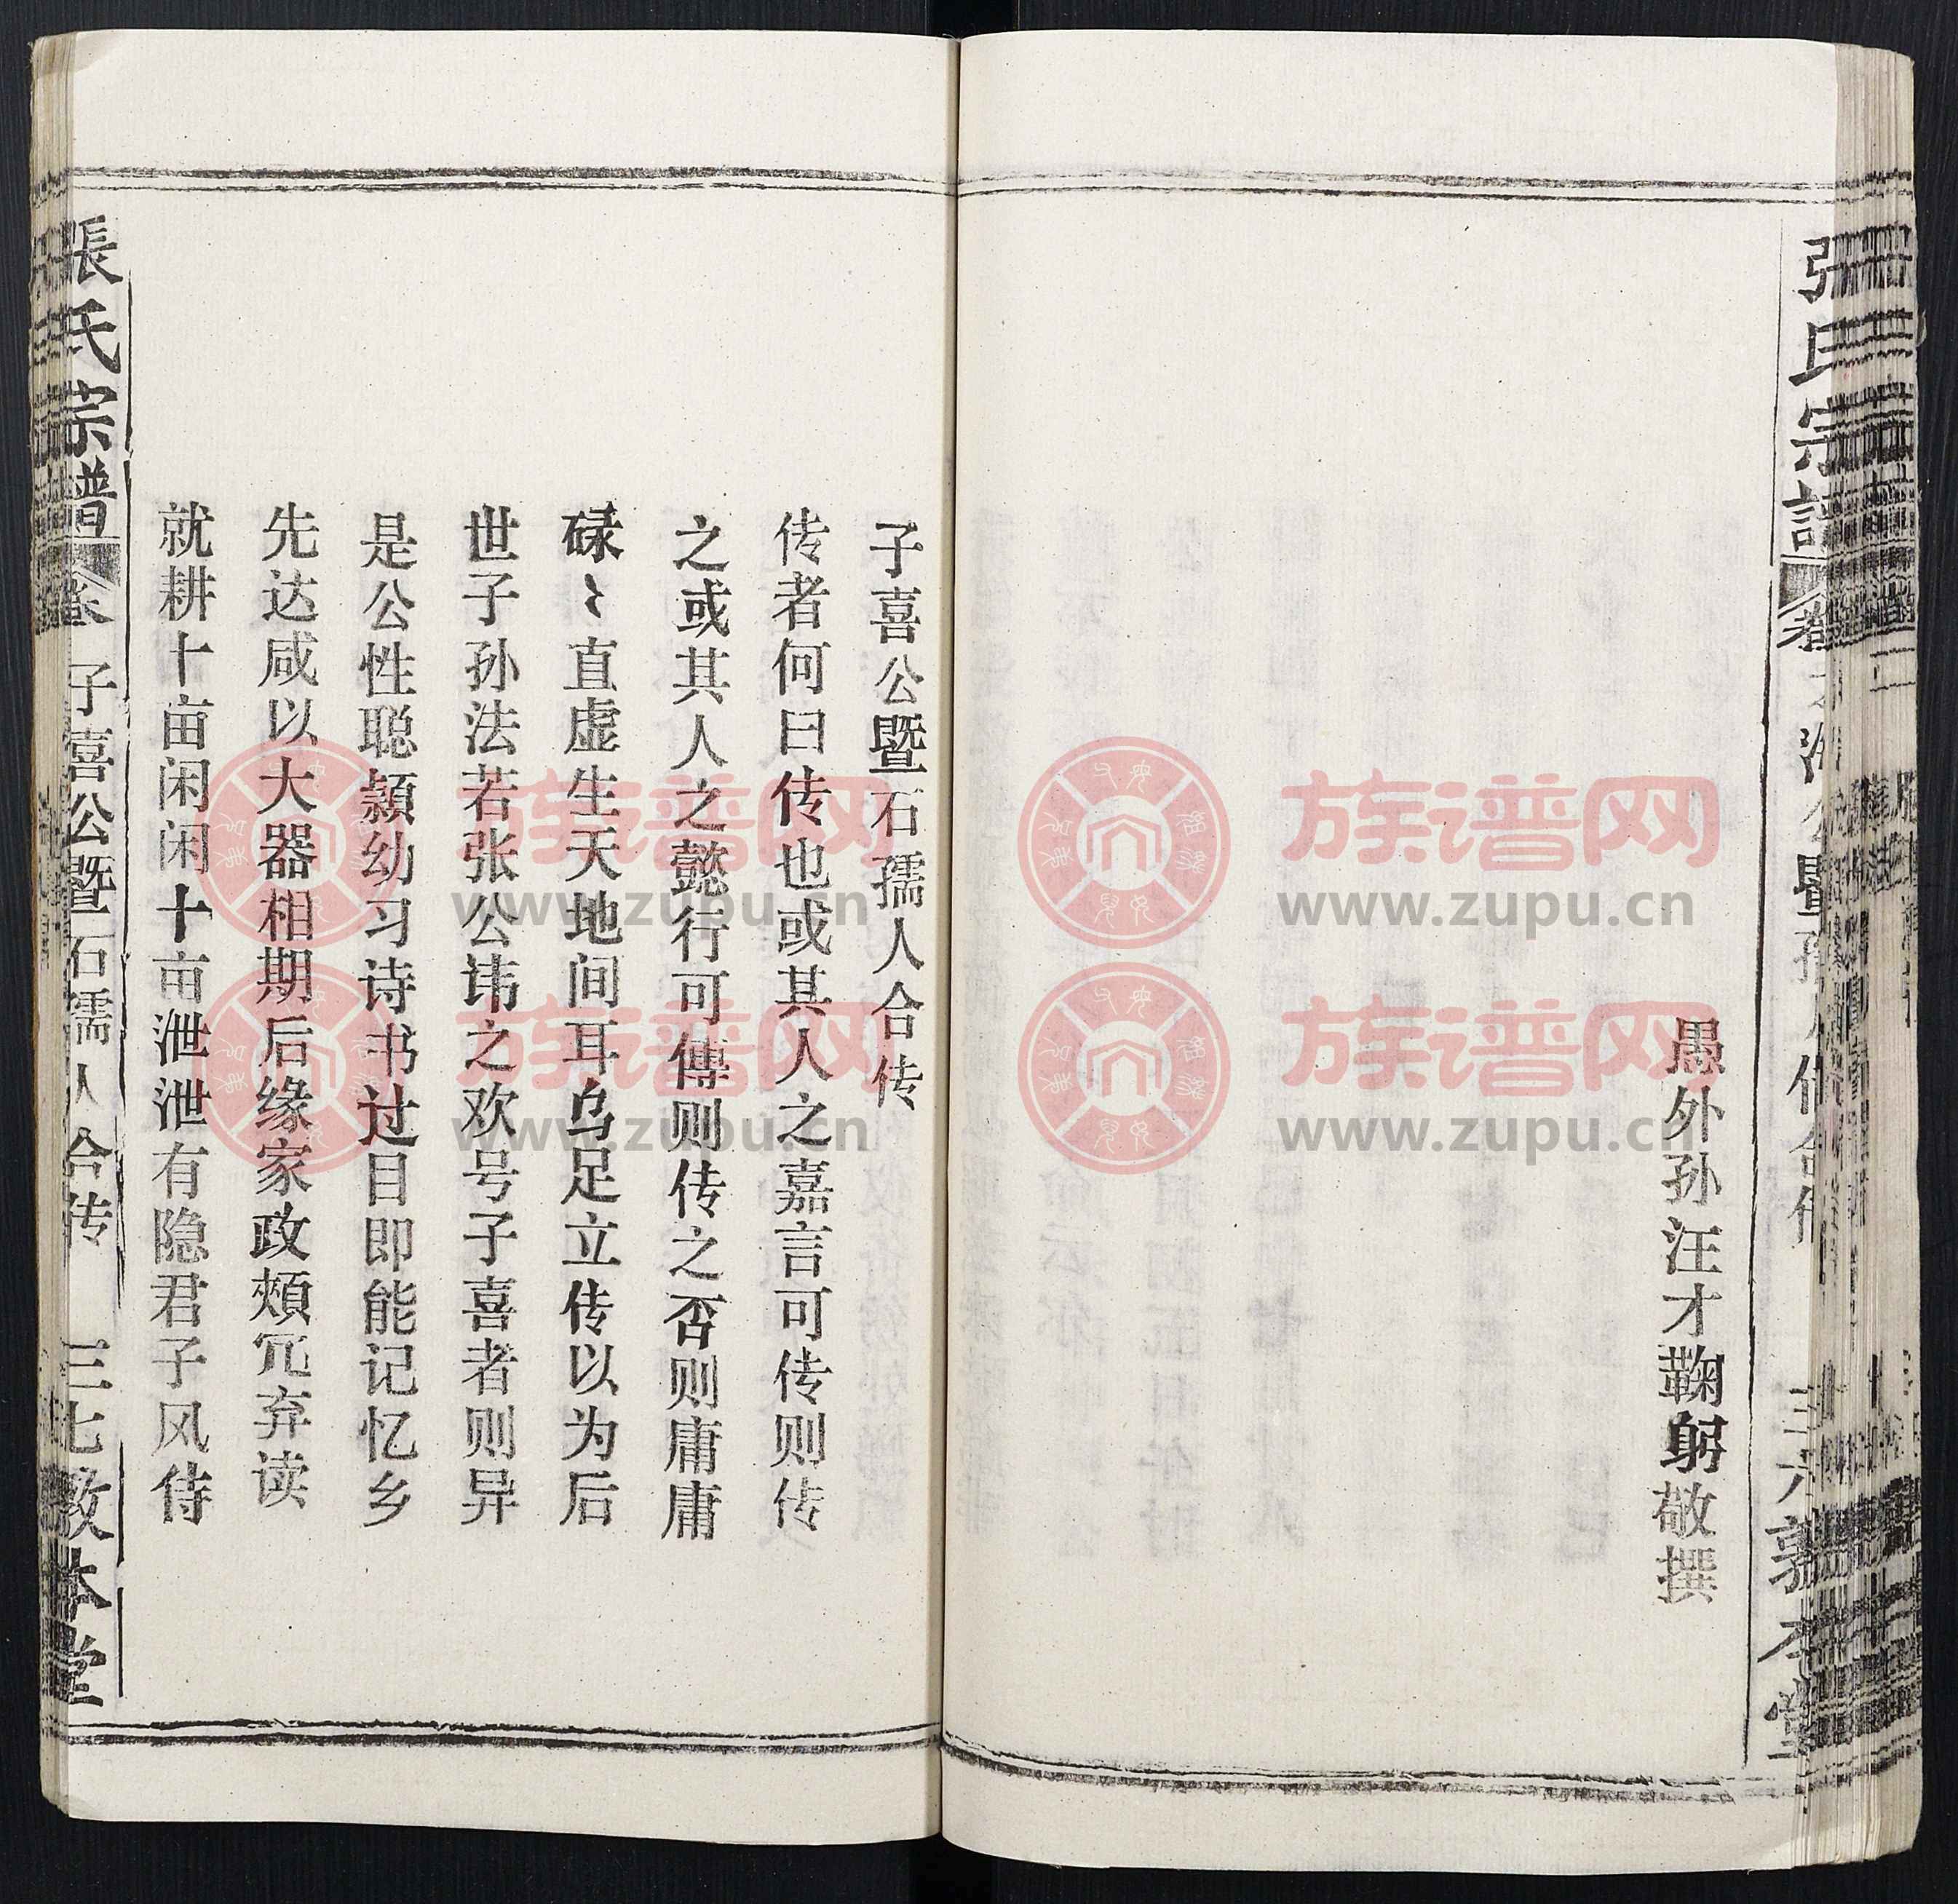 愚外孙汪才鞠躬敬撰
子喜公暨石孺人合传
传者何曰传也或其人之嘉言可传则传
之或其人之懿行可傳则传之否则庸庸
碌〻直虚生天地间耳乌足立传以为后
世子孙法若张公讳之欢号子喜者则异
是公性聪颖幼习诗书过目即能记忆乡
先达咸以大器相期后缘家政頰冗弃读
就耕十亩闲闲十亩泄泄有隐君子风侍
張氏宗譜
卷
子喜公暨石孺人合传
三七
敦本堂
族谱网
www.zupu.cn
族谱网
www.zupu.cn
族谱网
www.zupu.cn
族谱网
www.zupu.cn